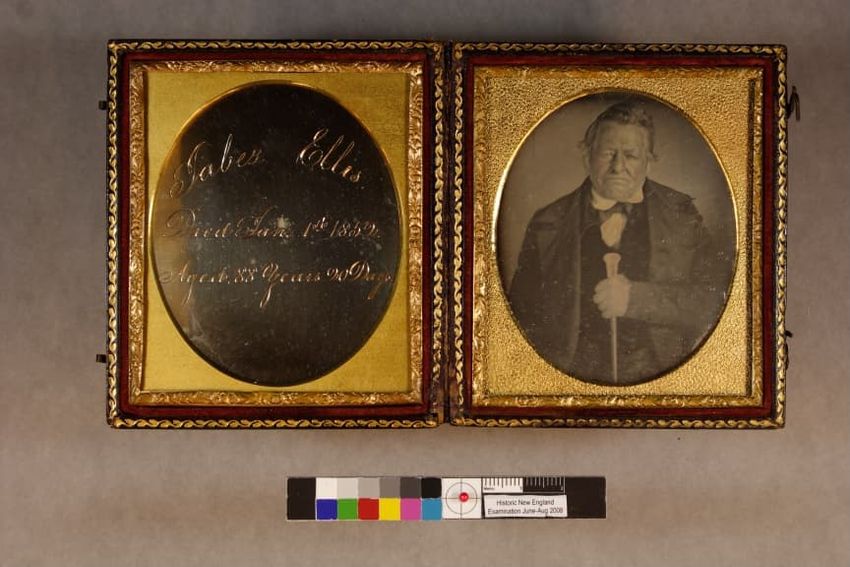 Jabez Ellis.
Died Jan. 1st 1852,
Aged, 88 Years 20 Days
Historic New England
Examination June-Aug 2008